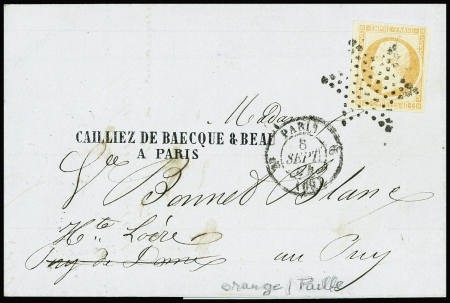 EMPIRE FRANC
Madame
CAILLIEZ DE BAECQUE & BEAU
A PARIS
PARIS
8
SEPT
Vve Bonnet Blanc
Hte Loire
Puy de Dome au Puy
orange / Paille